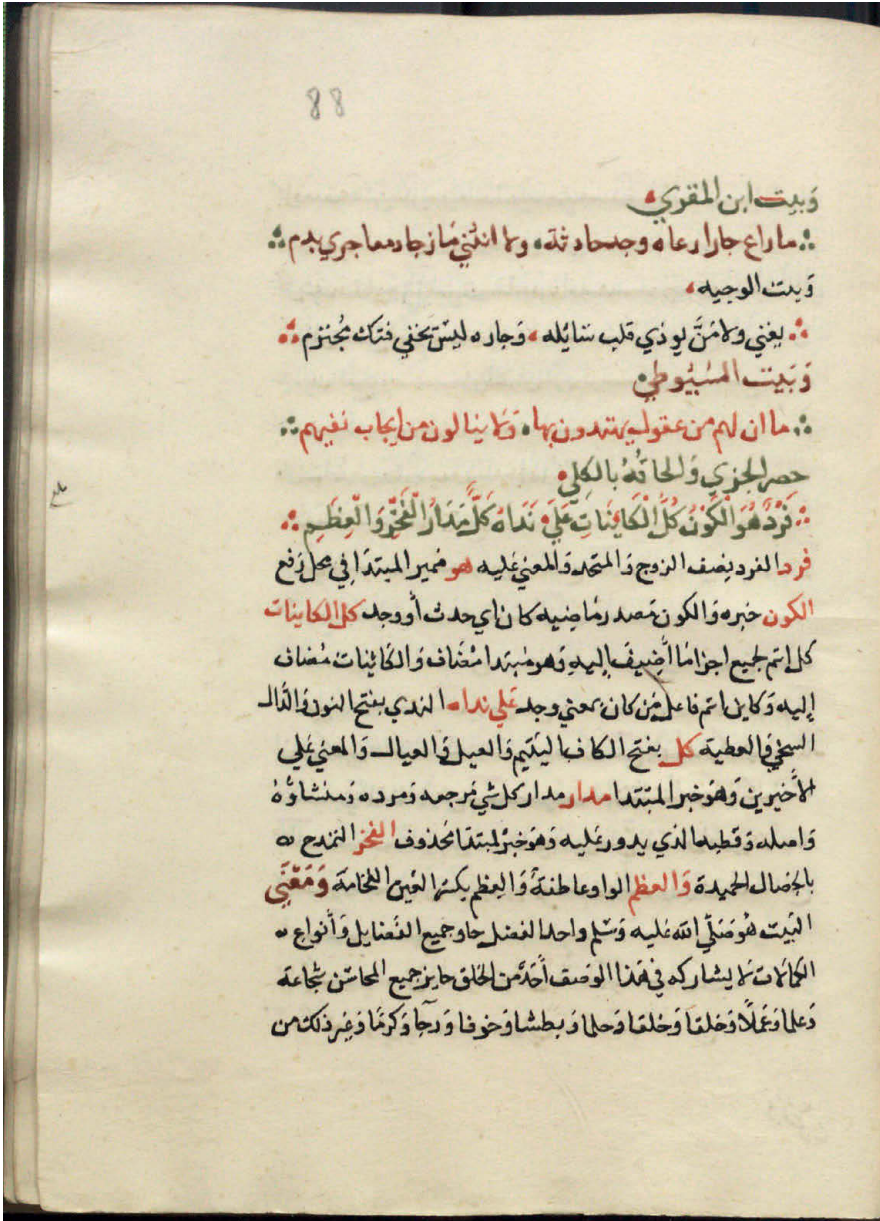 88
وَبيت ابن المقري
ما راع جارا رعاه وجد حادثة ولا انثني مازجا دمعا جري بدم
وَبيت الوجيه
يغني ولا مَنَّ يوذي قلب سَائله وَجاره ليسَ يخفي فتك مُجترم
وَبَيت السُيُوطي
ما ان لهم من عقول يهتدون بها وَلا ينالون من إيجاب نفيهم
حصر الجزي وَالحاقُهُ بالكلي
فَرْدٌ هُوَ الْكَوْنُ كُلُّ الْكَايِنَاتِ عَلَي نَدَاهُ كَلٌّ مَدَارُ الْفَخْرِ وَالْعِظَمِ
فرد الفرد نصف الزوج وَالمتحد وَالمعني عَليه هو ضمير المبتدَا في محل رَفع
الكون خبره وَالكون مَصدر مَاضيه كان اي حدث أو وجد كل الكاينات
كل اسَم لجميع اجزا مَا أُضِيفَ إليهِ وَهو مُبتدا مضَاف وَالكائنات مُضاف
إليه وَكاين اسَم فاعل مِن كان بمعني وجد عَلي نداه الندي بفتح النون وَالدَّال
السخي وَالعطية كل بفتح الكاف اليَتيم وَالعيل وَالعيال وَالمعني عَلي
الأخيرين وَهوَ خبر المبتدا مدار مدار كل شي مَرجعه وَمرده وَمنشاؤُهُ
وَاصله وَقطبه الذي يدور عَليه وَهوَ خبرٌ لمبتدَا محَذوف الفخر التمدح
بالخصال الحميدة وَالعظم الواو عاطفة وَالعِظم بكسَر العَين الفخامة وَمَعْنَي
البَيت هُو صَلَّي الله عَليه وَسَلم واحد الفضل حاو جميع الفَضايل وَأنواع
الكمالات لا يشاركه في هَذا الوَصف أحَد من الخلق حايز جميع المحاسَن شجاعة
وَعلما وَعَمَلًا وَخلقا وَخلقا وَحلما وَبطشا وَخوفا وَرجآ وَكرمَا وَغير ذلك من